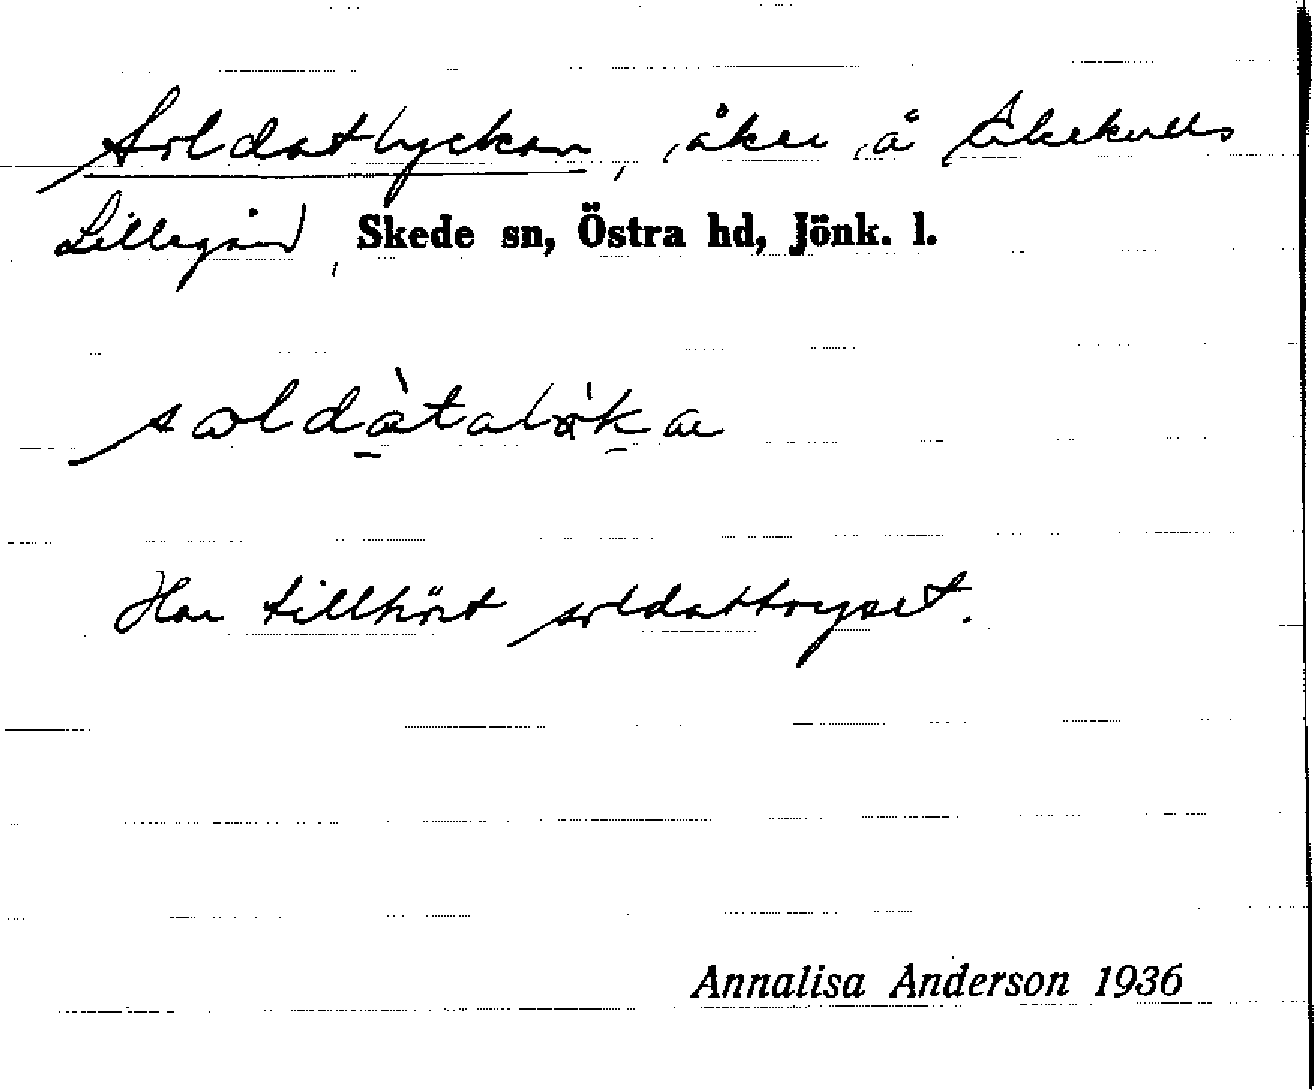 Soldatlyckan, åker å Åkekulls
Lillegård, Skede sn, Östra hd, Jönk. l.
Har tillhört soldattorpet.
Annalisa Anderson 1936